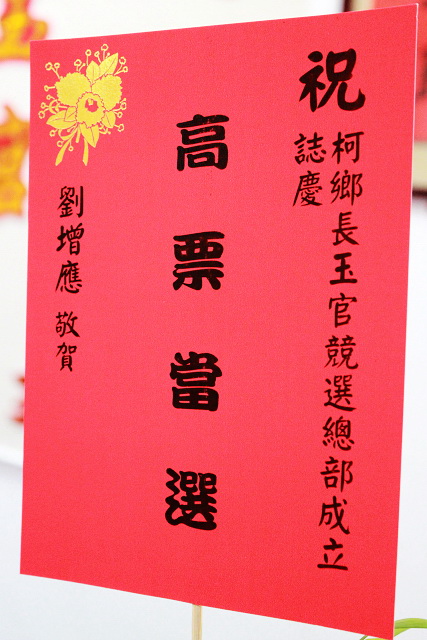 祝
柯鄉長玉官競選總部成立
誌慶
高票當選
劉增應 敬賀